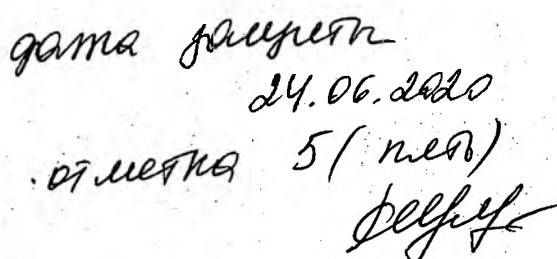 дата защиты
24.06.2020
отметка 5 (пять)